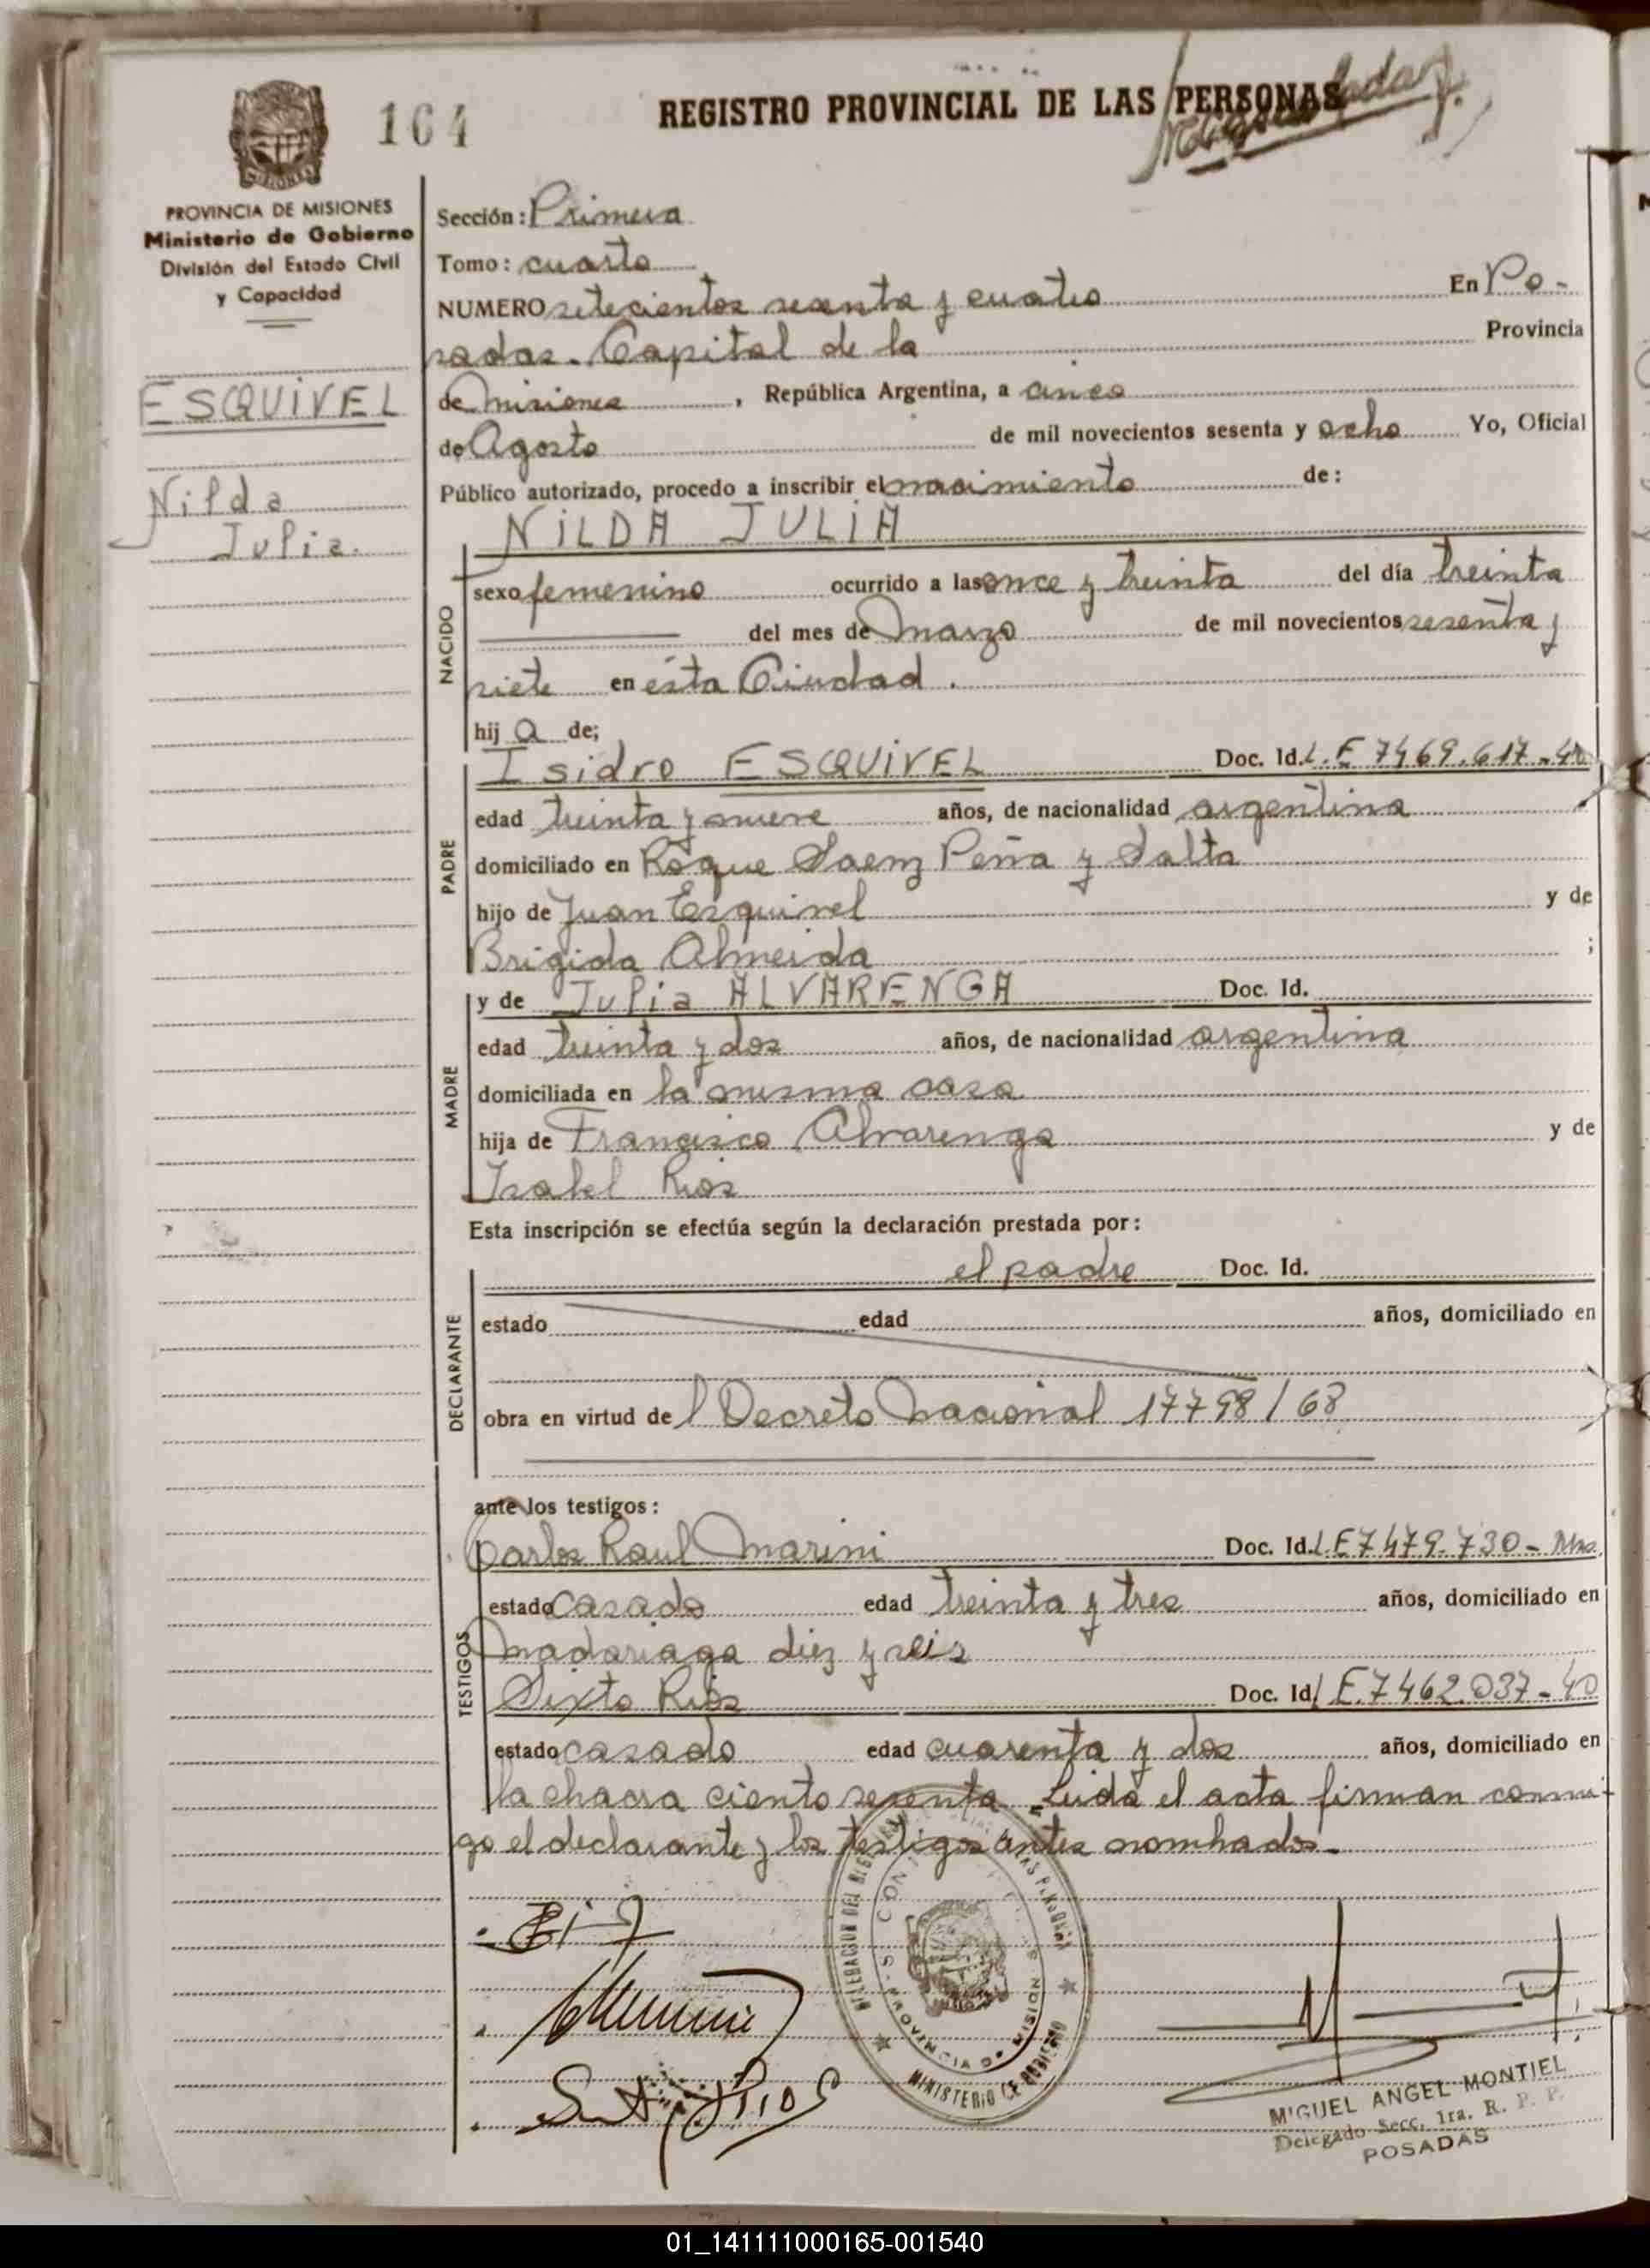 164
REGISTRO PROVINCIAL DE LAS PERSONAS
PROVINCIA DE MISIONES
Ministerio de Gobierno
División del Estado Civil
y Capacidad
ESQUIVEL
Nilda
Julia.
Sección: Primera
Tomo: cuarto
NUMERO setecientos sesenta y cuatro En Po-
sadas. Capital de la Provincia
de Misiones, República Argentina, a cinco
de Agosto de mil novecientos sesenta y ocho Yo, Oficial
Público autorizado, procedo a inscribir el nacimiento de:
NILDA JULIA
NACIDO
sexo femenino ocurrido a las once y treinta del día treinta
del mes de Marzo de mil novecientos sesenta y
siete en ésta Ciudad.
hija de;
PADRE
Isidro ESQUIVEL Doc. Id. L.E 7469.617-40
edad treinta y nueve años, de nacionalidad argentina
domiciliado en Roque Saenz Peña y Salta
hijo de Juan Esquivel y de
Brigida Almeida ;
MADRE
y de Julia ALVARENGA Doc. Id.
edad treinta y dos años, de nacionalidad argentina
domiciliada en la misma casa
hija de Francisco Alvarenga y de
Isabel Rios
Esta inscripción se efectúa según la declaración prestada por:
DECLARANTE
el padre Doc. Id.
estado edad años, domiciliado en
obra en virtud del Decreto Nacional 17798/68
ante los testigos:
TESTIGOS
Carlos Raul Marini Doc. Id. L.E 7479.730-Mnes.
estado casado edad treinta y tres años, domiciliado en
Madariaga diez y seis
Sixto Rios Doc. Id. L E.7462.037-40
estado casado edad cuarenta y dos años, domiciliado en
la chacra ciento sesenta. Leida el acta firman conmi-
go el declarante y los testigos antes nombrados.-
PROVINCIA DE MISIONES
MINISTERIO DE GOBIERNO
MIGUEL ANGEL MONTIEL
Delegado Secc. 1ra. R. P. P.
POSADAS
01_141111000165-001540